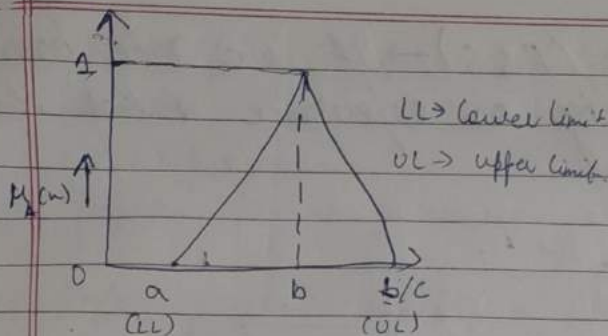 1
LL→ Lower limit
UL→ upper limit
μA(x)
0 a b b/c
(LL) (UL)